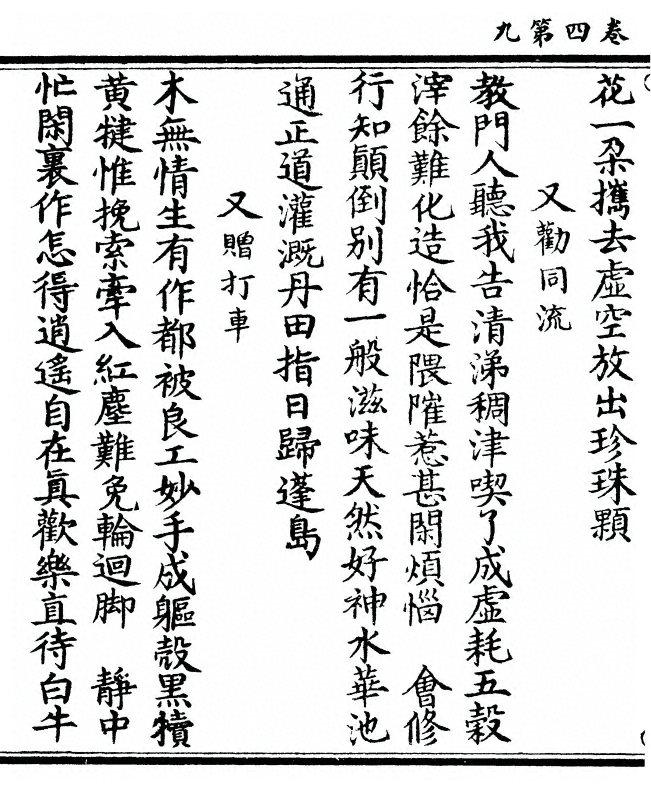 卷四第九
花一朶攜去虛空放出珍珠顆
又勸同流
教門人聽我告清涕稠津喫了成虛耗五穀
滓餘難化造恰是隈隺惹甚閑煩惱　會修
行知顚倒别有一般滋味天然好神水華池
通正道灌溉丹田指日歸蓬島
又贈打車
木無情生有作都被良工妙手成軀殼黑犢
黃犍惟挽索牽入紅塵難免輪迴脚　靜中
忙閑裏作怎得逍遙自在眞歡樂直待白牛